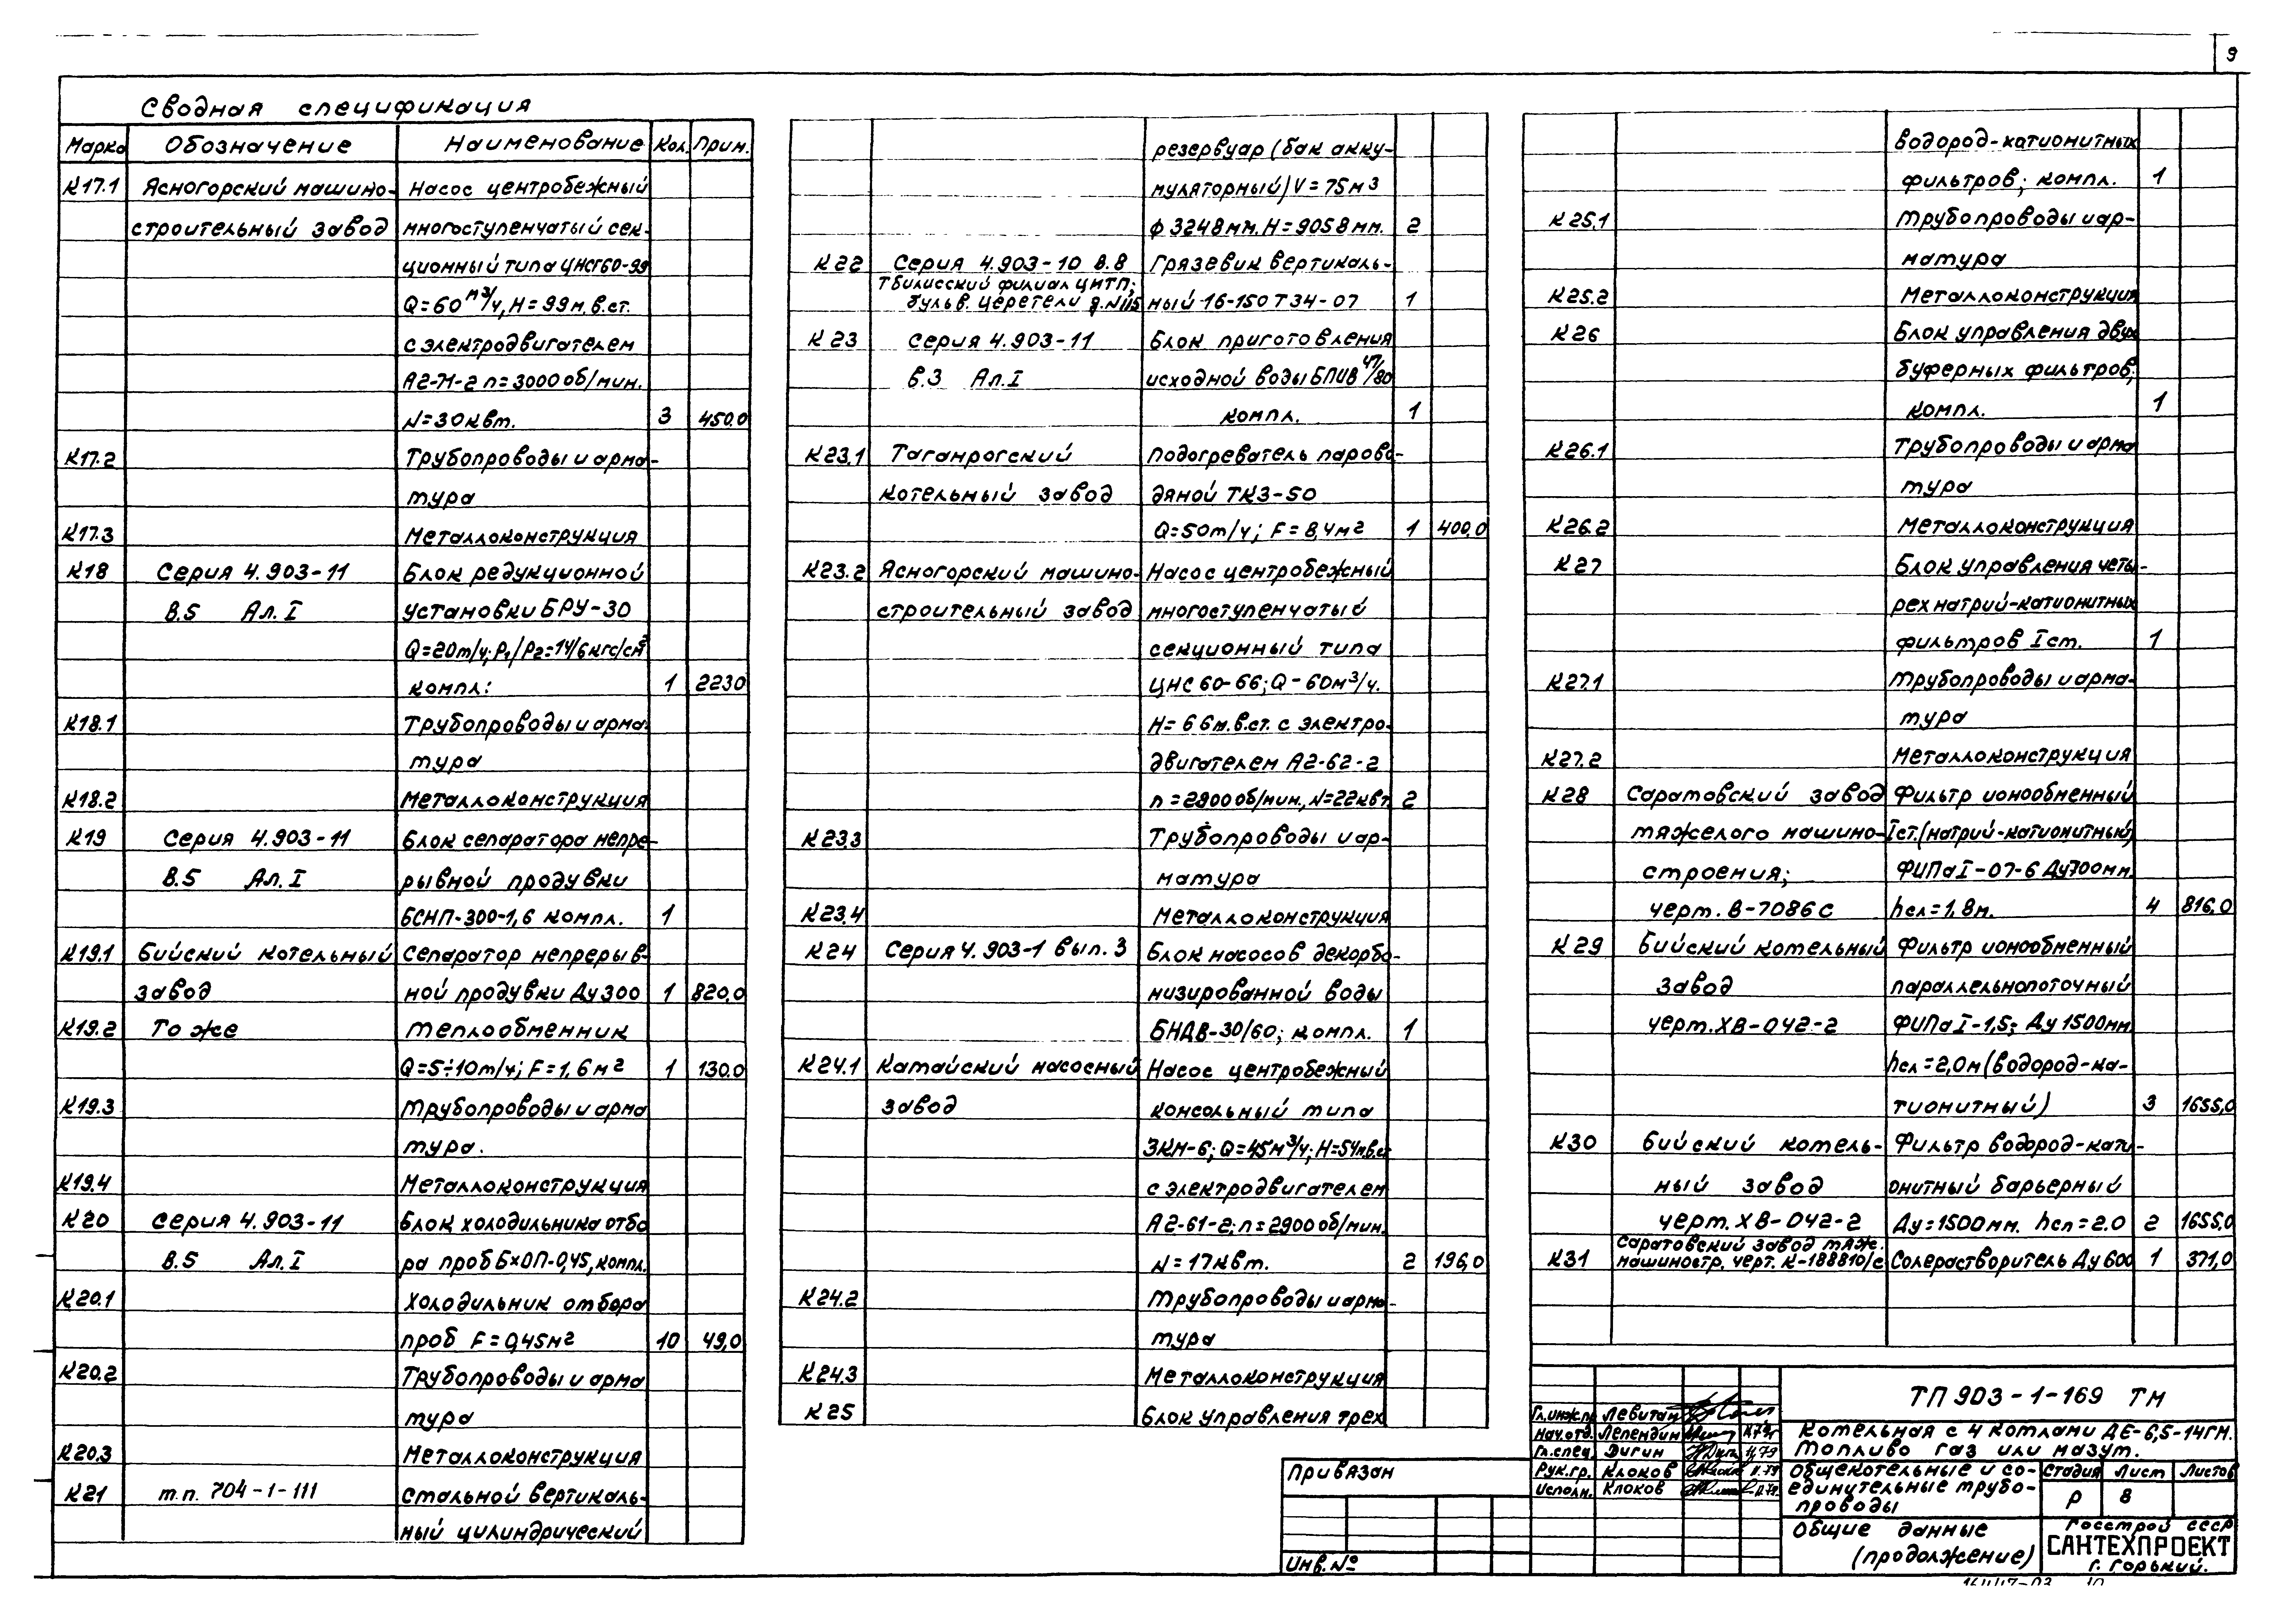 9
Сводная спецификация
Марка Обозначение Наименование Кол. Прим.
К17.1 Ясногорский машино- Насос центробежный
строительный завод многоступенчатый сек-
ционный типа ЦНСГ60-99
Q=60 м³/ч, H=99м.в.ст.
с электродвигателем
А2-71-2 n=3000 об/мин.
N=30квт. 3 450.0
К17.2 Трубопроводы и арма-
тура
К17.3 Металлоконструкция
К18 Серия 4.903-11 Блок редукционной
В.5 Ал.I установки БРУ-30
Q=20т/ч; P₁/P₂=14/6кгс/см²
компл: 1 2230
К18.1 Трубопроводы и арма-
тура
К18.2 Металлоконструкция
К19 Серия 4.903-11 Блок сепаратора непре-
В.5 Ал.I рывной продувки
БСНП-300-1,6 компл. 1
К19.1 Бийский котельный Сепаратор непрерыв-
завод ной продувки Ду300 1 820,0
К19.2 То же Теплообменник
Q=5÷10т/ч; F=1,6м² 1 130.0
К19.3 Трубопроводы и арма
тура.
К19.4 Металлоконструкция
К20 Серия 4.903-11 Блок холодильника отбо
В.5 Ал.I ра проб БхОП-0,45, компл.
К20.1 Холодильник отбора
проб F=0,45м² 10 49,0
К20.2 Трубопроводы и арма
тура
К20.3 Металлоконструкция
К21 т.п. 704-1-111 Стальной вертикаль-
ный цилиндрический
резервуар (бак акку-
муляторный) V=75м³
ф 3248мм. H=9058мм. 2
К22 Серия 4.903-10 В.8 Грязевик вертикаль-
Тбилисский филиал ЦИТП;
бульв. Церетели д.№115 ный 16-150 Т34-07 1
К23 Серия 4.903-11 Блок приготовления
в.3 Ал.I исходной воды БПИВ 47/80
компл. 1
К23.1 Таганрогский Подогреватель парово-
котельный завод дяной ТКЗ-50
Q=50т/ч; F=8,4м² 1 400,0
К23.2 Ясногорский машино- Насос центробежный
строительный завод многоступенчатый
секционный типа
ЦНС 60-66; Q-60м³/ч.
H=66м.в.ст. с электро-
двигателем А2-62-2
n=2900 об/мин., N=22квт 2
К23.3 Трубопроводы и ар-
матура
К23.4 Металлоконструкция
К24 Серия 4.903-1 вып. 3 Блок насосов декарбо-
низированной воды
БНДВ-30/60; компл. 1
К24.1 Катайский насосный Насос центробежный
завод консольный типа
3КМ-6; Q=45м³/ч; H=54м.в.ст
с электродвигателем
А2-61-2; n=2900 об/мин.
N=17квт. 2 196,0
К24.2 Трубопроводы и арма-
тура
К24.3 Металлоконструкция
К25 Блок управления трех
водород-катионитных
фильтров; компл. 1
К25.1 Трубопроводы и ар-
матура
К25.2 Металлоконструкция
К26 Блок управления двух
буферных фильтров;
компл. 1
К26.1 Трубопроводы и арма
тура
К26.2 Металлоконструкция
К27 Блок управления четы-
рех натрий-катионитных
фильтров I ст. 1
К27.1 Трубопроводы и арма-
тура
К27.2 Металлоконструкция
К28 Саратовский завод Фильтр ионообменный
тяжелого машино- Iст.(натрий-катионитный)
строения; ФИПаI-07-6 Ду700мм.
черт. В-7086с hсл=1,8м. 4 816,0
К29 Бийский котельный Фильтр ионообменный
завод параллельнопоточный
черт.ХВ-042-2 ФИПаI-1,5; Ду 1500мм
hсл=2,0м(водород-ка-
тионитный) 3 1655,0
К30 Бийский котель- Фильтр водород-кати-
ный завод онитный барьерный
черт.ХВ-042-2 Ду=1500мм. hсл=2.0 2 1655,0
Саратовский завод тяж.
К31 машиностр. черт. К-188810/с Солерастворитель Ду 600 1 371,0
ТП 903-1-169 ТМ
Гл.инж.пр. Левитан
Нач.отд. Лепендин
Гл.спец. Дигин 11.79
Рук.гр. Клоков 11.79
Исполн. Клоков 11.79
Котельная с 4 котлами ДЕ-6,5-14ГМ.
Топливо газ или мазут.
Общекотельные и со-
единительные трубо-
проводы
Стадия Лист Листов
Р 8
Общие данные
(продолжение)
Госстрой СССР
САНТЕХПРОЕКТ
г. Горький.
Привязан
Инв.№